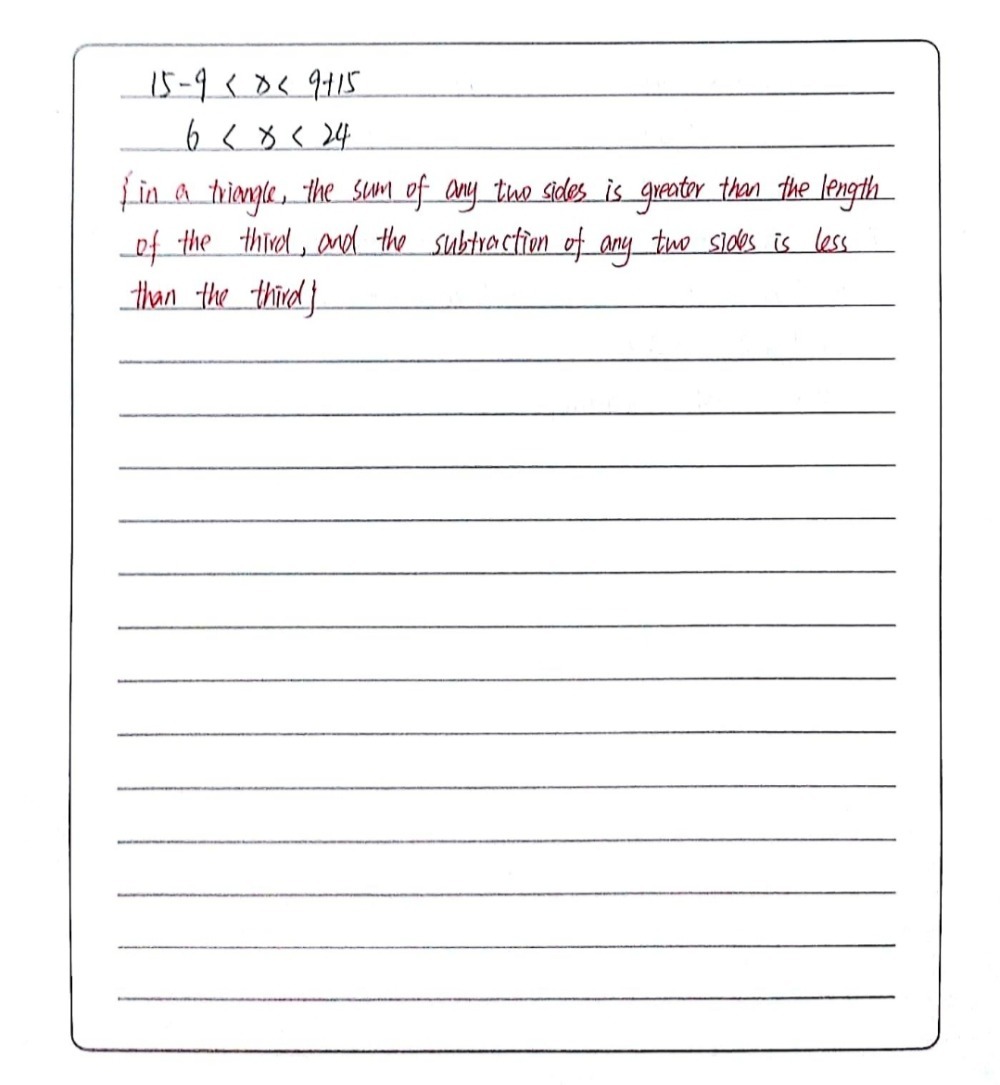 15-9 < x < 9+15
6 < x < 24
{in a triangle, the sum of any two sides is greater than the length
of the third, and the subtraction of any two sides is less
than the third}